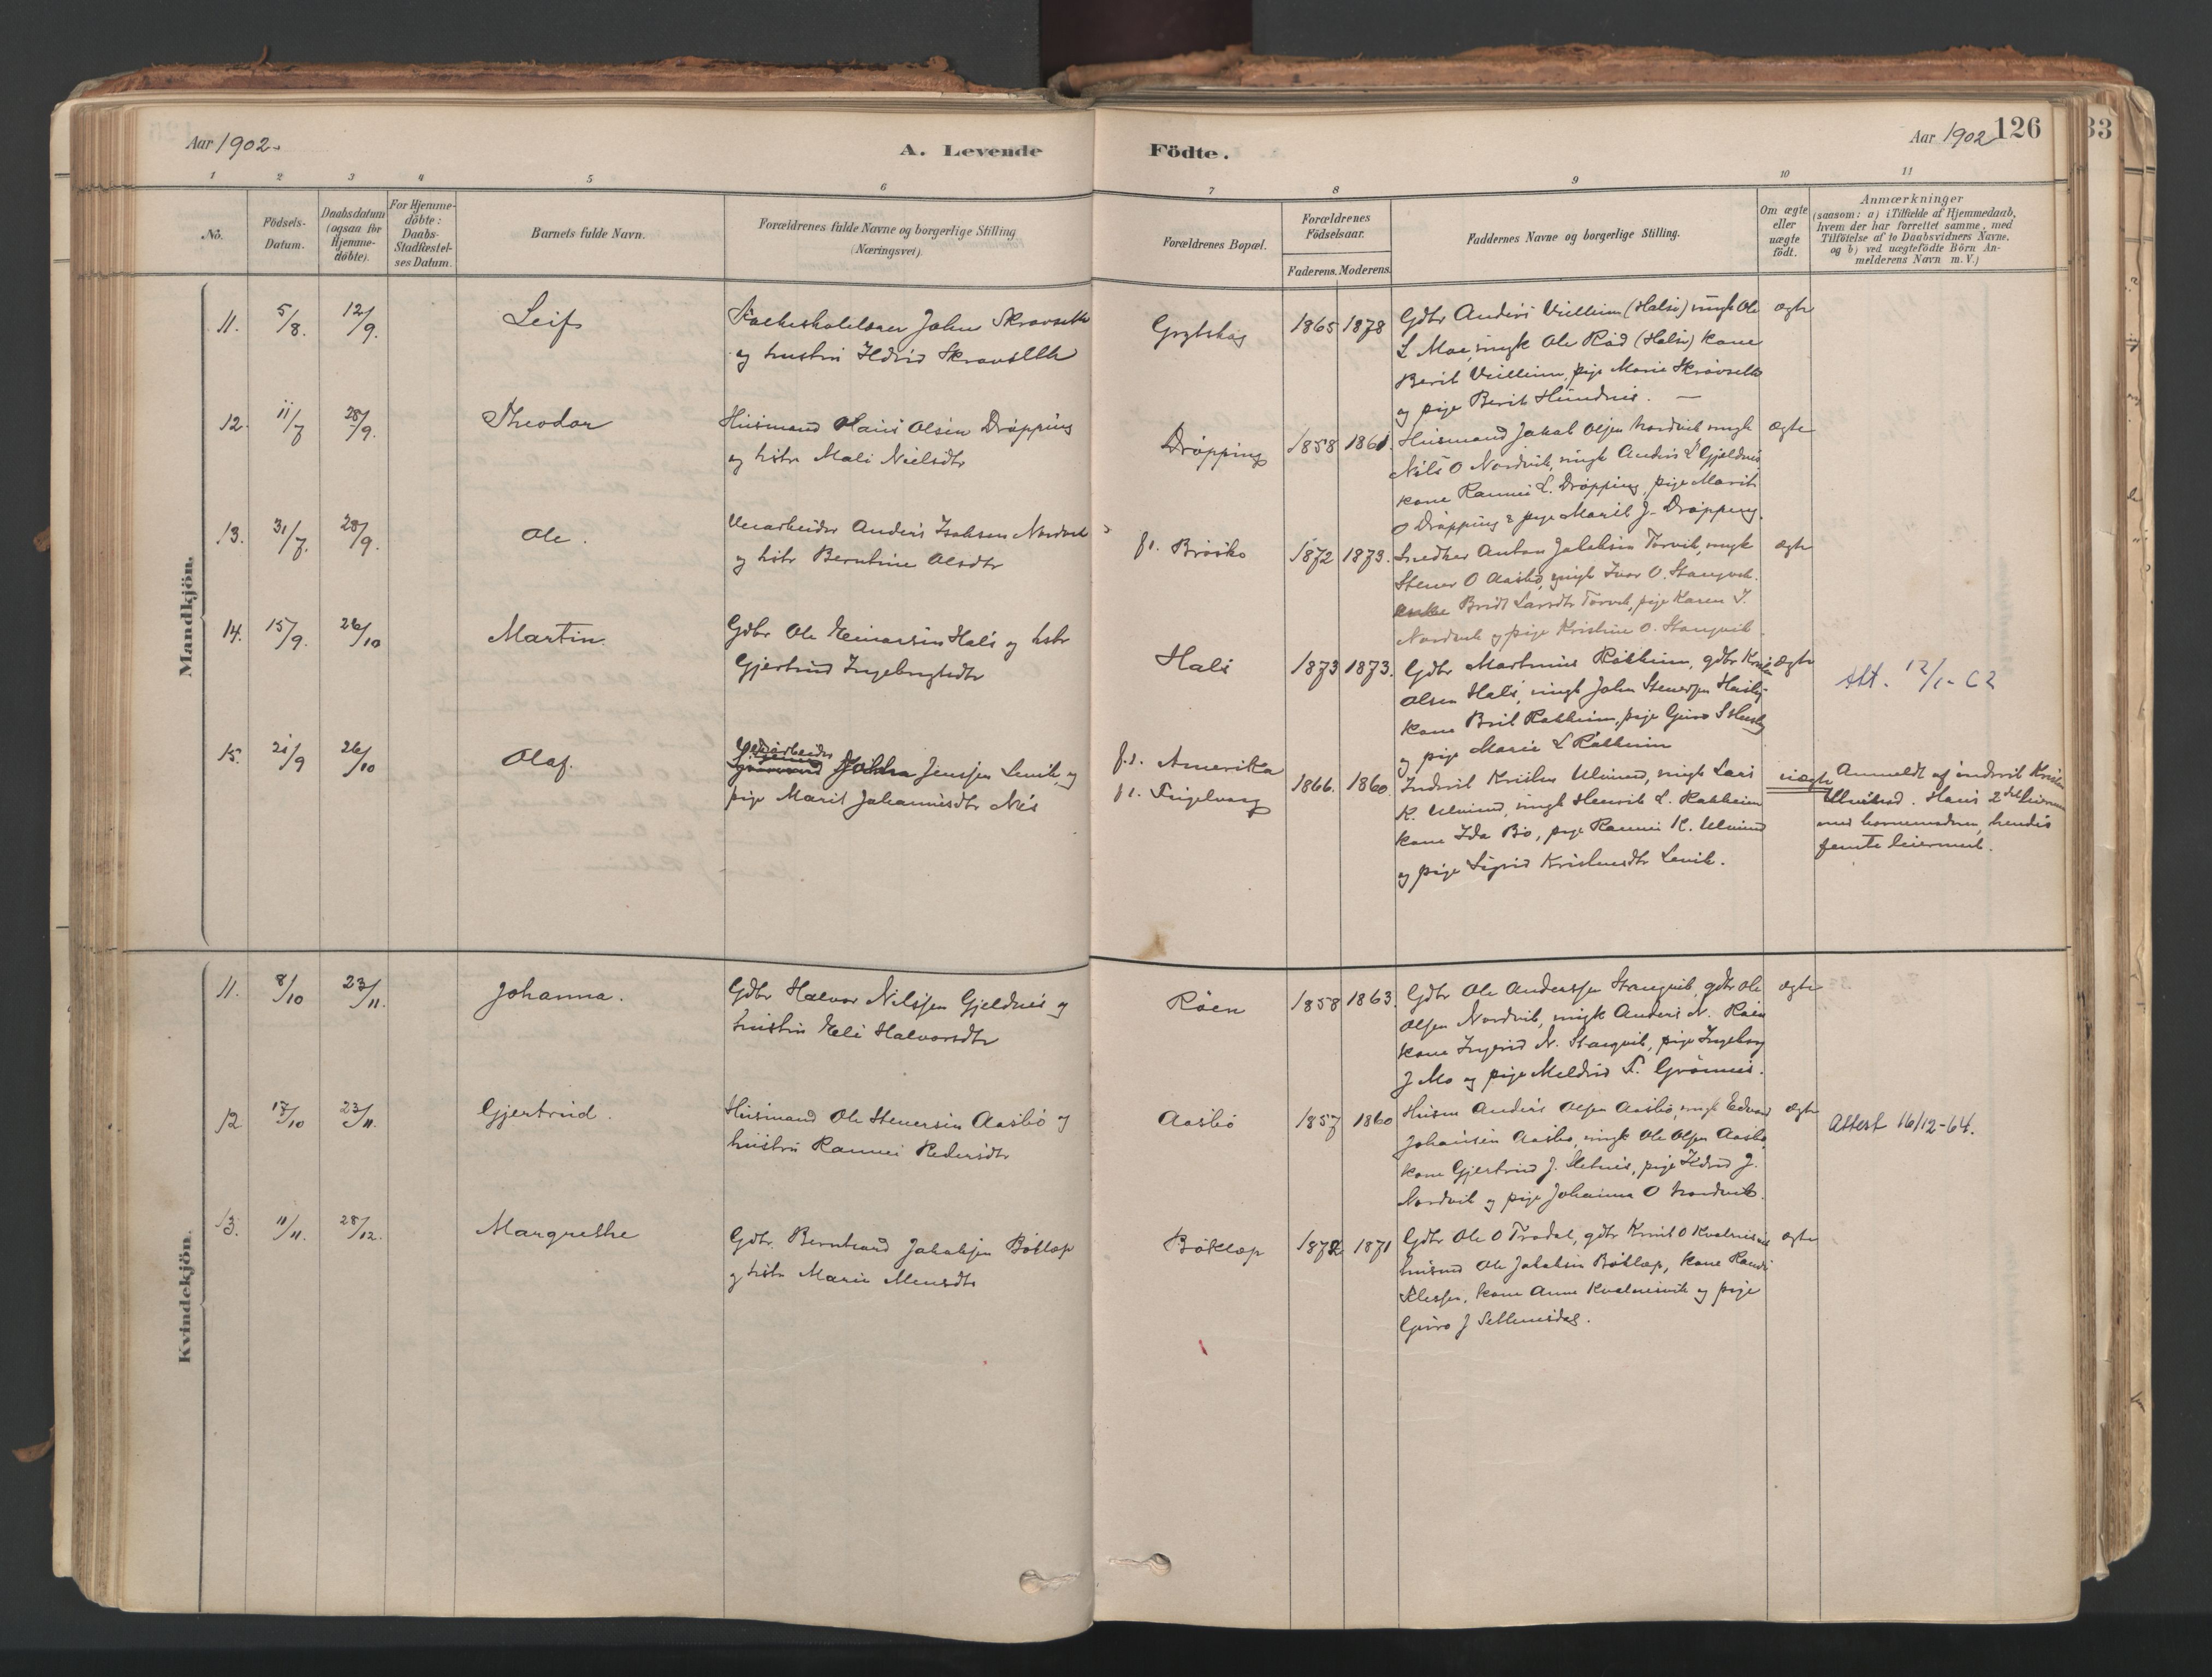 Aar 1902.
A. Levende
Födte.
Aar 1902
126
33
1 2 3 4 5 6 7 8 9 10 11
No.
Födsels-
Datum.
Daabsdatum
(ogsaa for
Hjemme-
döbte).
For Hjemme-
döbte:
Daabs-
Stadfæstel-
ses Datum.
Barnets fulde Navn.
Forældrenes fulde Navne og borgerlige Stilling
(Næringsvei).
Forældrenes Bopæl.
Forældrenes
Födselsaar.
Faderens. Moderens.
Faddernes Navne og borgerlige Stilling.
Om ægte
eller
uægte
födt.
Anmærkninger
(saasom: a) i Tilfælde af Hjemmedaab,
hvem der har forrettet samme, med
Tilföielse af to Daabsvidners Navne,
og b) ved uægtefödte Börn An-
melderens Navn m. V.)
Mandkjön.
11. 5/8. 12/9. Leif
John Skravseth
og hustru Ildrid Skravseth
1865 1878
Gdbr Anders (Halse) ungk Ole
L Moe, ungk Ole Röd (Halse) kone
Berit pige Marie Skravseth
og pige Berit
ægte
12. 11/7 28/9. Theodor
Husmand Hans Olsen Dröpping
og hstr Mali Nielsdtr
Dröpping 1858 1861.
Husmand Jakob Olsen Nordvik ungk
Nils O Nordvik, ungk Anders L Gjeldnes
kone Rannei L. Dröpping, pige Marit
O Dröpping & pige Marit J. Dröpping.
ægte
13. 31/7. 28/9. Ole.
Anders Isaksen Nordvik
og hstr Berntine Olsdtr
f. t. Bröske 1872 1873.
Snedker Anton Jakobsen Torvik, ungk
Stener O Aasbö, ungk Iver O. Stangvik.
Bridt Larsdtr Torvik, pige Karen I.
Nordvik og pige Kristine O. Stangvik.
ægte
14. 15/9. 26/10 Martin.
Gdbr Ole Einarsen Hals og hstr
Gjertrud Ingebrigtsdtr
Hals 1873 1873.
Gdbr Martinus Rökkum, gdbr
Olsen Hals, ungk John Stenersen
kone Brit Rökkum, pige Guro
og pige Marie L Rökkum
ægte
Att. 12/1-62
15. 21/9 26/10 Olaf.
Jenssen Lervik, og
pige Marit Johannesdtr Nes
f. t. Amerika
f. t. 1866. 1860
Indervik Kristen Ulvund, ungk Lars
K. Ulvund, ungk Henrik L. Rökkum
kone Ida Bö, pige Rannei K. Ulvund
og pige Sigrid Kristensdtr Lervik.
uægte
Anmeldt af
Ulvund. Hans 2det
med barnemoderen, hendes
femte leiermaal.
Kvindekjön.
11. 8/10 23/11. Johanna.
Gdbr Halvor Nilssen Gjeldnes og
hustru Eli Halvorsdtr
Röen 1858 1863.
Gdbr Ole Anderssen Stangvik, gdbr Ole
Olsen Nordvik, ungk Anders N. Röen
kone Ingrid N. Stangvik, pige Ingeborg
J Mo og pige Meldrid T. Grönnes.
ægte
12 17/10 23/11. Gjertrud.
Husmand Ole Stenersen Aasbö og
hustru Rannei Pedersdtr
Aasbö 1857 1860
Husm Anders Olsen Aasbö, ungk Edvard
Johansen Aasbö, ungk Ole Olsen Aasbö,
kone Gjertrud J. Sletnes, pige Ildrid J.
Nordvik og pige Johanna O Nordvik.
ægte
Attest 16/12-64.
13. 11/11. 28/12. Margrethe
Gdbr. Bernhard Jakobsen Böklep
og hstr Marie Monsdtr
Böklep 1872 1871
Gdbr Ole O Trödal, gdbr Knut O Kvalnesvik
husmd Ole Jakobsen Böklep, kone Randi
kone Anne Kvalnesvik og pige
Guro J Settemsdal.
ægte